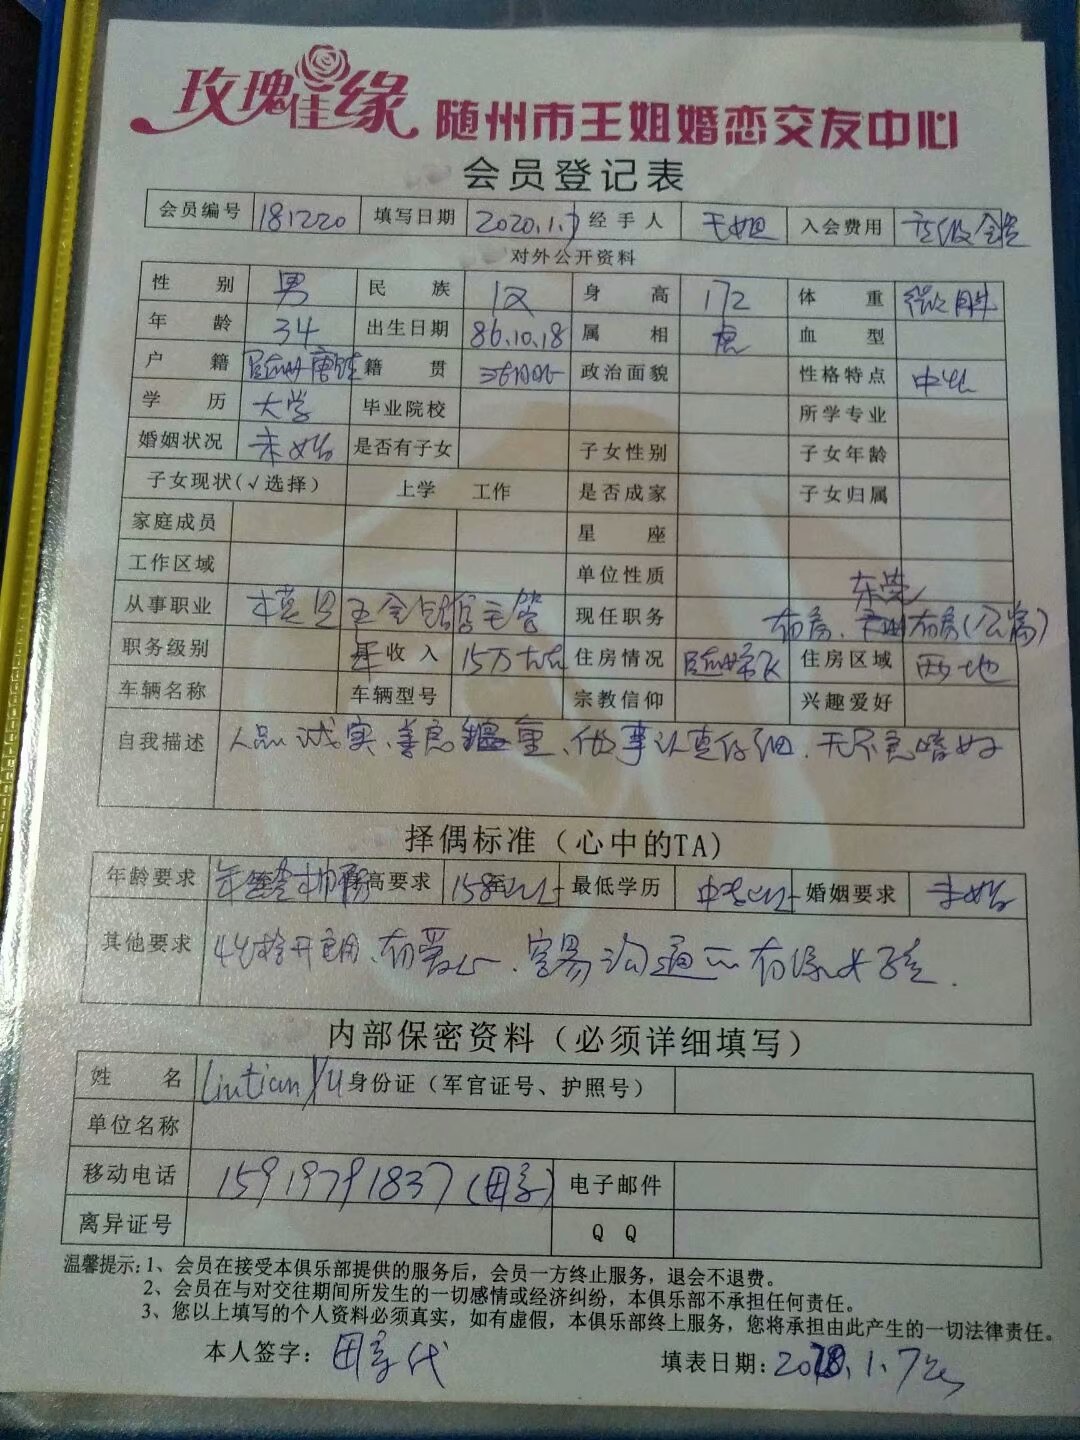 玫瑰佳缘 随州市王姐婚恋交友中心
会员登记表
会员编号 181220 填写日期 2020.1.7 经手人 王姐 入会费用
对外公开资料
性别 男 民族 汉 身高 172 体重 微胖
年龄 34 出生日期 86.10.18 属相 虎 血型
户籍 随州唐镇 籍贯 政治面貌 性格特点 中性
学历 大学 毕业院校 所学专业
婚姻状况 未婚 是否有子女 子女性别 子女年龄
子女现状(√选择) 上学 工作 是否成家 子女归属
家庭成员 星座
工作区域 单位性质 东莞
从事职业 五金 主管 现任职务 有房、 有房(公寓)
职务级别 年收入 15万左右 住房情况 住房区域 两地
车辆名称 车辆型号 宗教信仰 兴趣爱好
自我描述 人品诚实、善良 稳重、做事认真仔细、无不良嗜好
择偶标准（心中的TA）
年龄要求 年龄 相仿 身高要求 158以上 最低学历 中专以上 婚姻要求 未婚
其他要求 性格开朗、有爱心、容易沟通 有缘女孩.
内部保密资料（必须详细填写）
姓名 Liutianyu 身份证（军官证号、护照号）
单位名称
移动电话 15919791837(田宇) 电子邮件
离异证号 QQ
温馨提示：1、会员在接受本俱乐部提供的服务后，会员一方终止服务，退会不退费。
2、会员在与对交往期间所发生的一切感情或经济纠纷，本俱乐部不承担任何责任。
3、您以上填写的个人资料必须真实，如有虚假，本俱乐部终上服务，您将承担由此产生的一切法律责任。
本人签字：田宇代 填表日期：2020.1.7